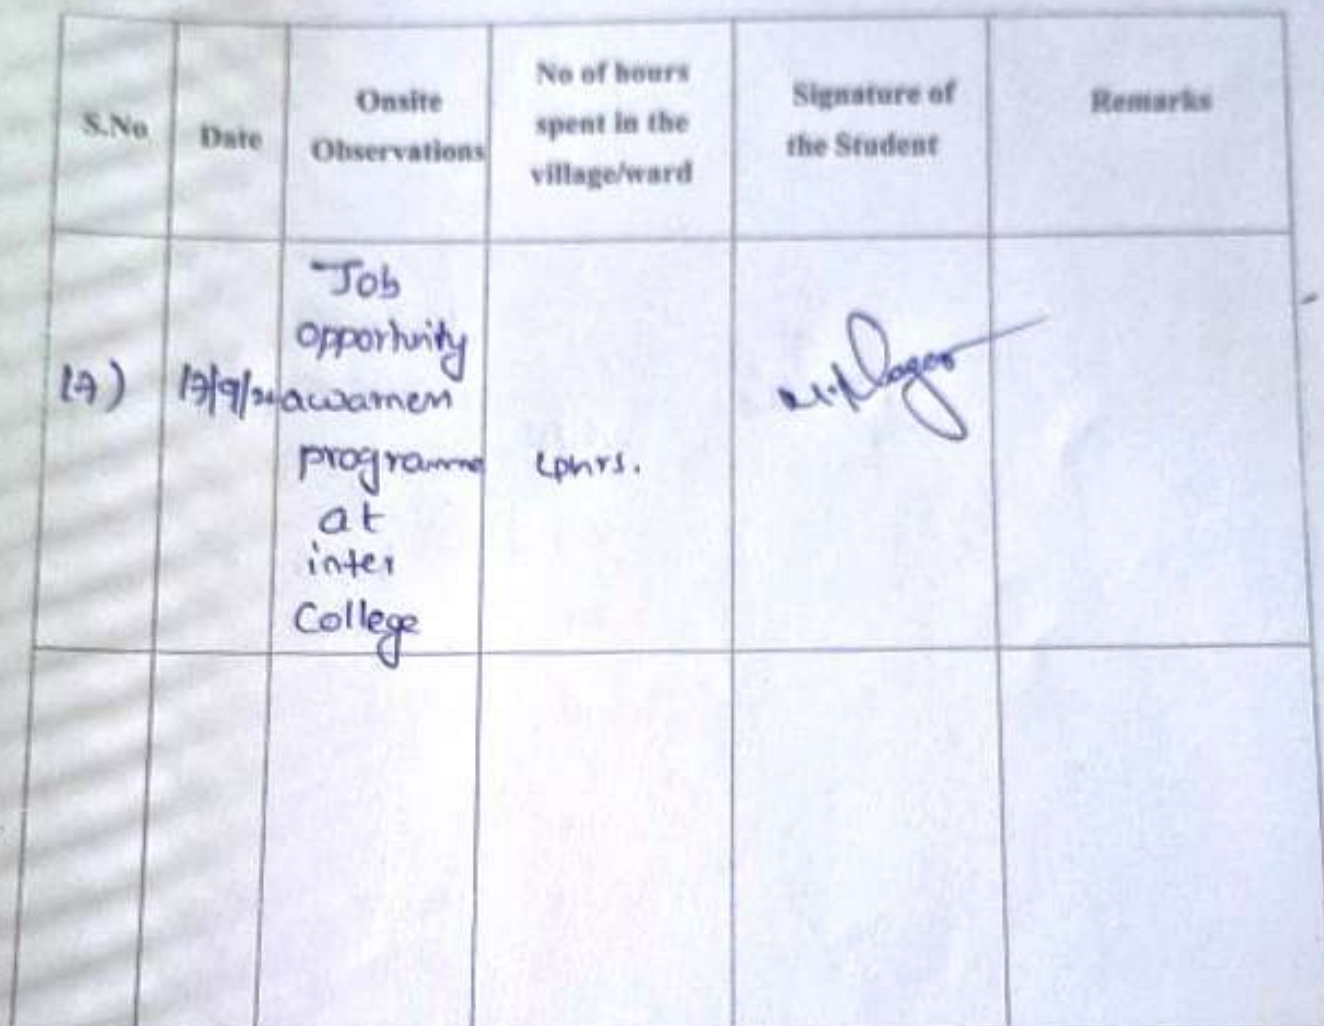 S.No
Date
Onsite
Observations
No of hours
spent in the
village/ward
Signature of
the Student
Remarks
17)
Job
opportunity
awarnen
programme
at
inter
College
hrs.